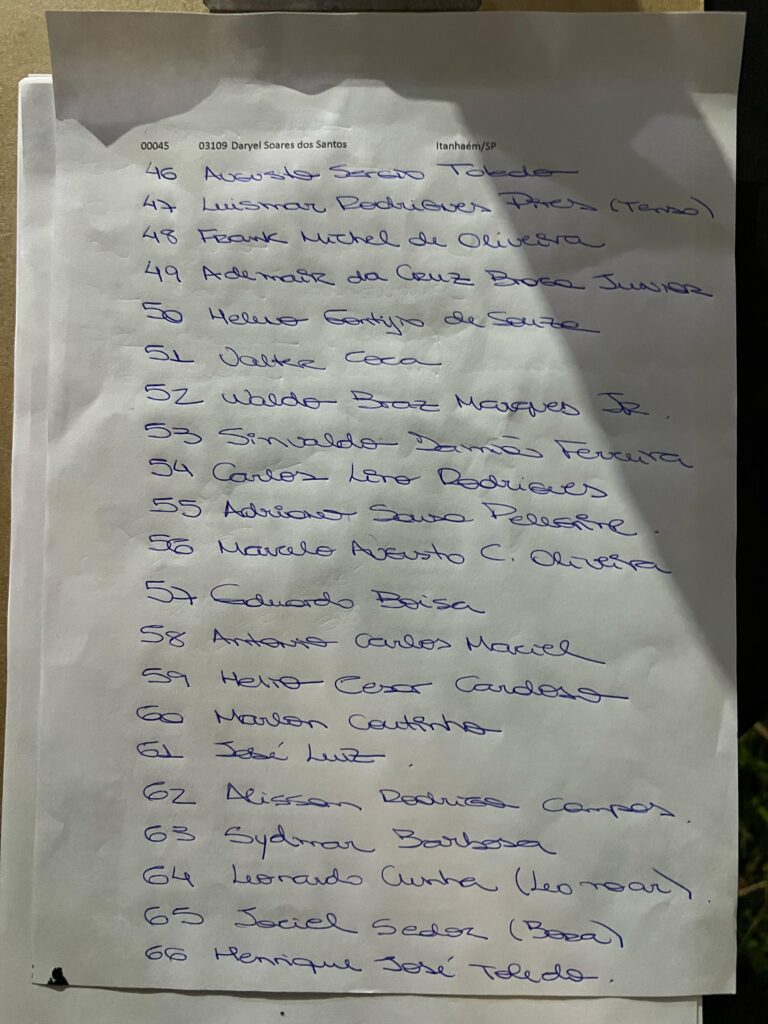 00045 03109 Daryel Soares dos Santos Itanhaém/SP
46 Augusto Sergio Toledo
47 Luismar Rodrigues Pires (Tenso)
48 Frank Michel de Oliveira
49 Ademair da Cruz Braga Junior
50 Heleno de Souza
51 Valter Coca
52 Waldo Braz Marques Jr.
53 Sinvaldo Damião Ferreira
54 Carlos Lino Rodrigues
55 Adriano Sousa
56 Marcelo Augusto C. Oliveira
57 Eduardo Boisa
58 Antonio Carlos Maciel
59 Helio Cesar Cardoso
60 Marlon Coutinho
61 José Luiz.
62 Alisson Rodrigo Campos.
63 Sydmar Barbosa
64 Leonardo Cunha (Leo roar)
65 Jociel (Boza)
66 Henrique José Toledo.